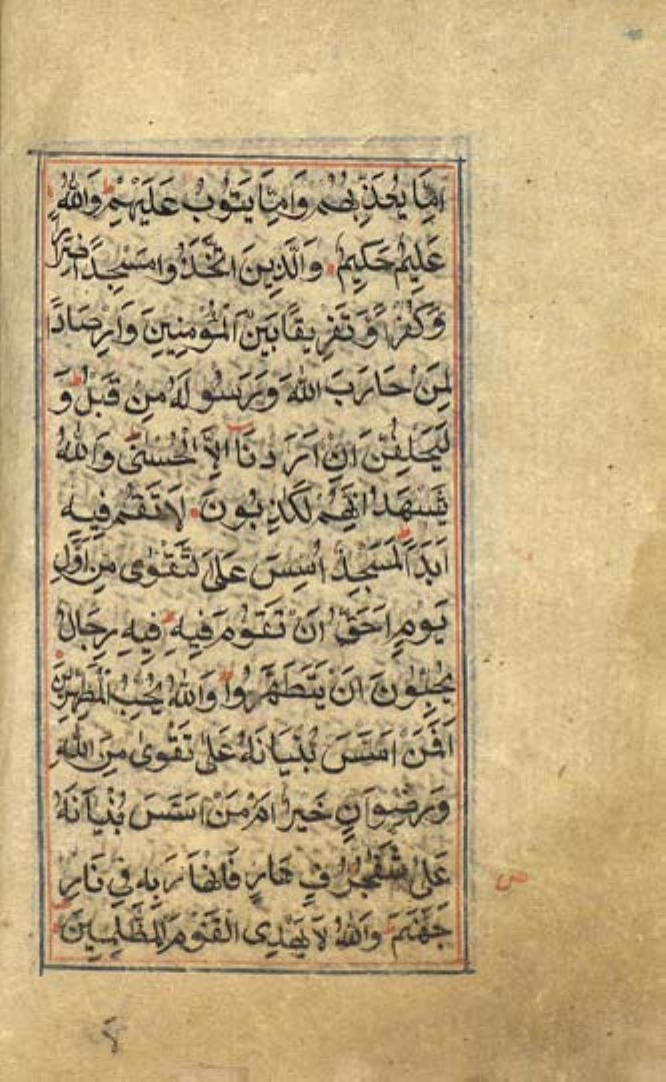 اِمَّا يُعَذِّبُهُمْ وَاِمَّا يَتُوبُ عَلَيْهِمْ وَاللّٰهُ
عَلِيمٌ حَكِيمٌ وَالَّذِينَ اتَّخَذُوا مَسْجِدًا ضِرَارًا
وَكُفْرًا وَتَفْرِيقًا بَيْنَ الْمُؤْمِنِينَ وَاِرْصَادًا
لِمَنْ حَارَبَ اللّٰهَ وَرَسُولَهُ مِنْ قَبْلُ وَ
لَيَحْلِفُنَّ اِنْ اَرَدْنَا اِلَّا الْحُسْنٰى وَاللّٰهُ
يَشْهَدُ اِنَّهُمْ لَكَاذِبُونَ لَا تَقُمْ فِيهِ
اَبَدًا لَمَسْجِدٌ اُسِّسَ عَلَى التَّقْوٰى مِنْ اَوَّلِ
يَوْمٍ اَحَقُّ اَنْ تَقُومَ فِيهِ فِيهِ رِجَالٌ
يُحِبُّونَ اَنْ يَتَطَهَّرُوا وَاللّٰهُ يُحِبُّ الْمُطَّهِّرِينَ
اَفَمَنْ اَسَّسَ بُنْيَانَهُ عَلٰى تَقْوٰى مِنَ اللّٰهِ
وَرِضْوَانٍ خَيْرٌ اَمْ مَنْ اَسَّسَ بُنْيَانَهُ
عَلٰى شَفَا جُرُفٍ هَارٍ فَانْهَارَ بِهِ فِي نَارِ
جَهَنَّمَ وَاللّٰهُ لَا يَهْدِى الْقَوْمَ الظَّالِمِينَ
ص